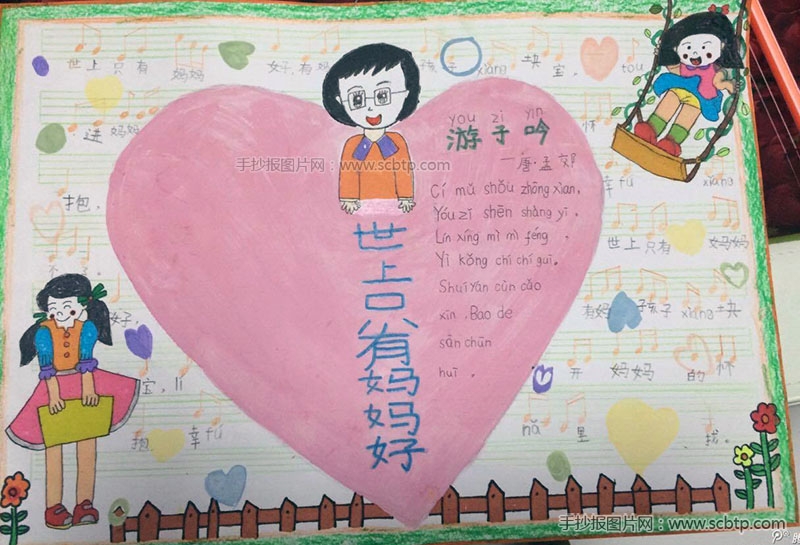 世上只有 妈妈 好,有妈 孩子 xiàng 块 宝, tou
进 妈妈 怀
抱, 幸 fú xiǎng
世上只有 妈妈
好, 有妈 孩子 xiang 块
宝, li 开 妈妈 的 怀
抱 幸 fú nǎ 里 找。
世上只有妈妈好
you zi yin
游子吟
—唐·孟郊
Cí mǔ shǒu zhōng xiàn,
Yóu zǐ shēn shàng yī.
Lín xíng mì mì féng,
Yì kǒng chí chí guī.
Shuí yán cùn cǎo
xīn, Bao de
sān chūn
huī。
手抄报图片网:www.scbtp.com
手抄报图片网:www.scbtp.com